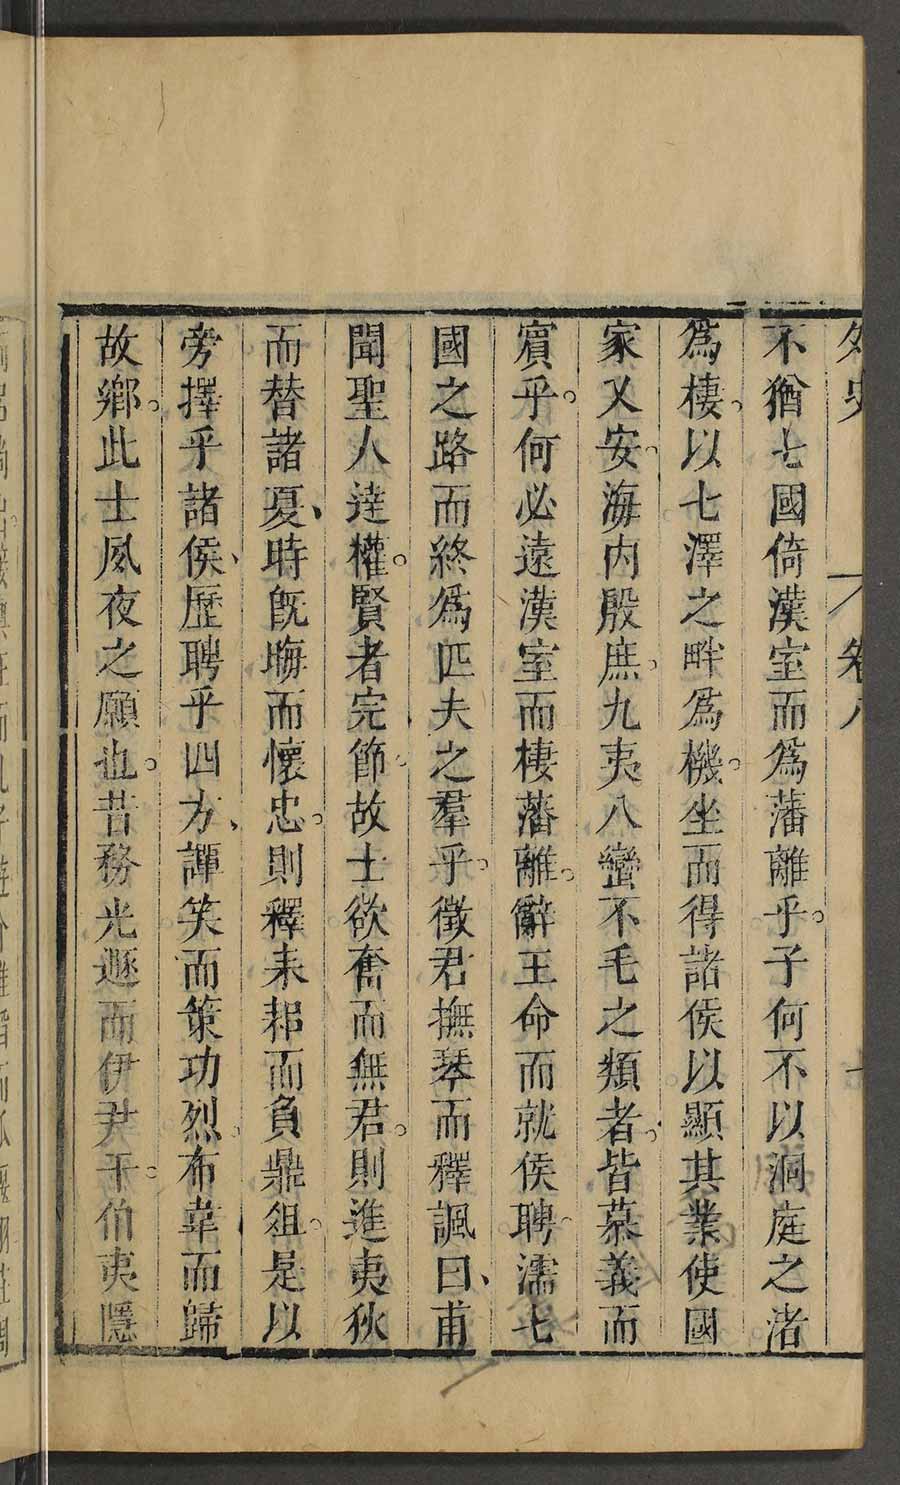 外史 卷八
不猶七國倚漢室而為藩離乎。子何不以洞庭之渚
為棲。以七澤之畔為機。坐而得諸侯以顯其業使國
家又安。海内殷庶。九夷八蠻不毛之類者。皆慕義而
賓乎。何必遠漢室而棲藩離。辭王命而就侯聘。濡七
國之路而終為匹夫之羣乎。徵君撫琴而釋諷曰、甫
聞聖人達權。賢者完節。故士欲奮而無君。則進夷狄
而替諸夏、時旣晦而懷忠。則釋耒耜而負鼎俎。是以
旁擇乎諸侯、歷聘乎四方、譚笑而策功烈。布韋而歸
故鄉。此士夙夜之願也。昔務光遯而伊尹干。伯夷隱